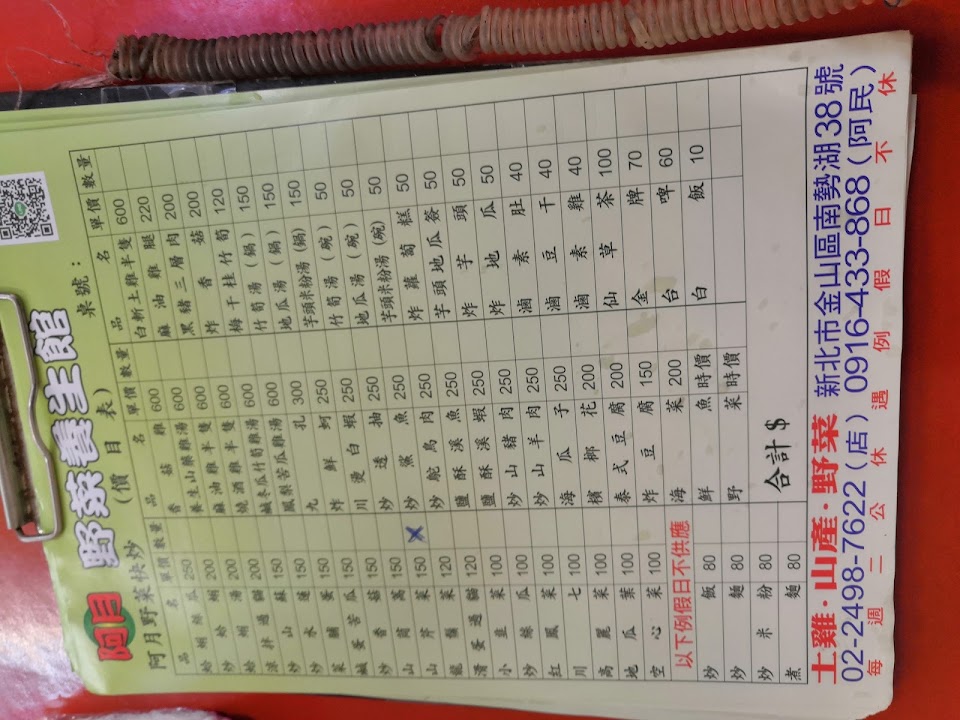 阿月 野菜養生館
阿月野菜快炒 (價目表) 桌號：
品名 單價 數量
蛤蜊絲瓜 250
炒蛤蜊 200
蛤蜊湯 200
涼拌過貓 200
炒山蘇 150
炒水蓮 150
菜脯蛋 150
鹹蛋苦瓜 150
炒香菇 150
山茼蒿 150
山芹菜 150
龍鬚菜 120
滑蛋過貓 120
小韭菜 100
炒絲瓜 100
紅鳳菜 100
川七 100
高麗菜 100
地瓜葉 100
空心菜 100
以下例假日不供應
炒飯 80
炒麵 80
炒米粉 80
煮麵 80
品名 單價 數量
香菇雞 600
養生山藥雞湯 600
麻油雞半隻 600
燒酒雞半隻 600
鹹冬瓜竹筍雞湯 600
鳳梨苦瓜雞湯 600
九孔 300
炸鮮蚵 250
川燙白蝦 250
炒透抽 250
炒鯊魚 250
炒鴕鳥肉 250
鹽酥溪魚 250
鹽酥溪蝦 250
炒山豬肉 250
炒山羊肉 250
海瓜子 250
檳榔花 200
泰式豆腐 200
炸豆腐 150
海菜 200
鮮魚 時價
野菜 時價
品名 單價 數量
白斬土雞半隻 600
麻油雞腿 220
黑豬三層肉 200
炸香菇 200
梅干桂竹筍 120
竹筍湯(鍋) 150
地瓜湯(鍋) 150
芋頭米粉湯(鍋) 150
竹筍湯(碗) 50
地瓜湯(碗) 50
芋頭米粉湯(碗) 50
炸蘿蔔糕 50
芋頭地瓜簽 50
炸芋頭 50
炸地瓜 50
滷素肚 40
滷豆干 40
滷素雞 40
仙草茶 100
金牌 70
台啤 60
白飯 10
合計$
土雞·山產·野菜 新北市金山區南勢湖38號
02-2498-7622(店) 0916-433-868(阿民)
每週三公休遇例假日不休